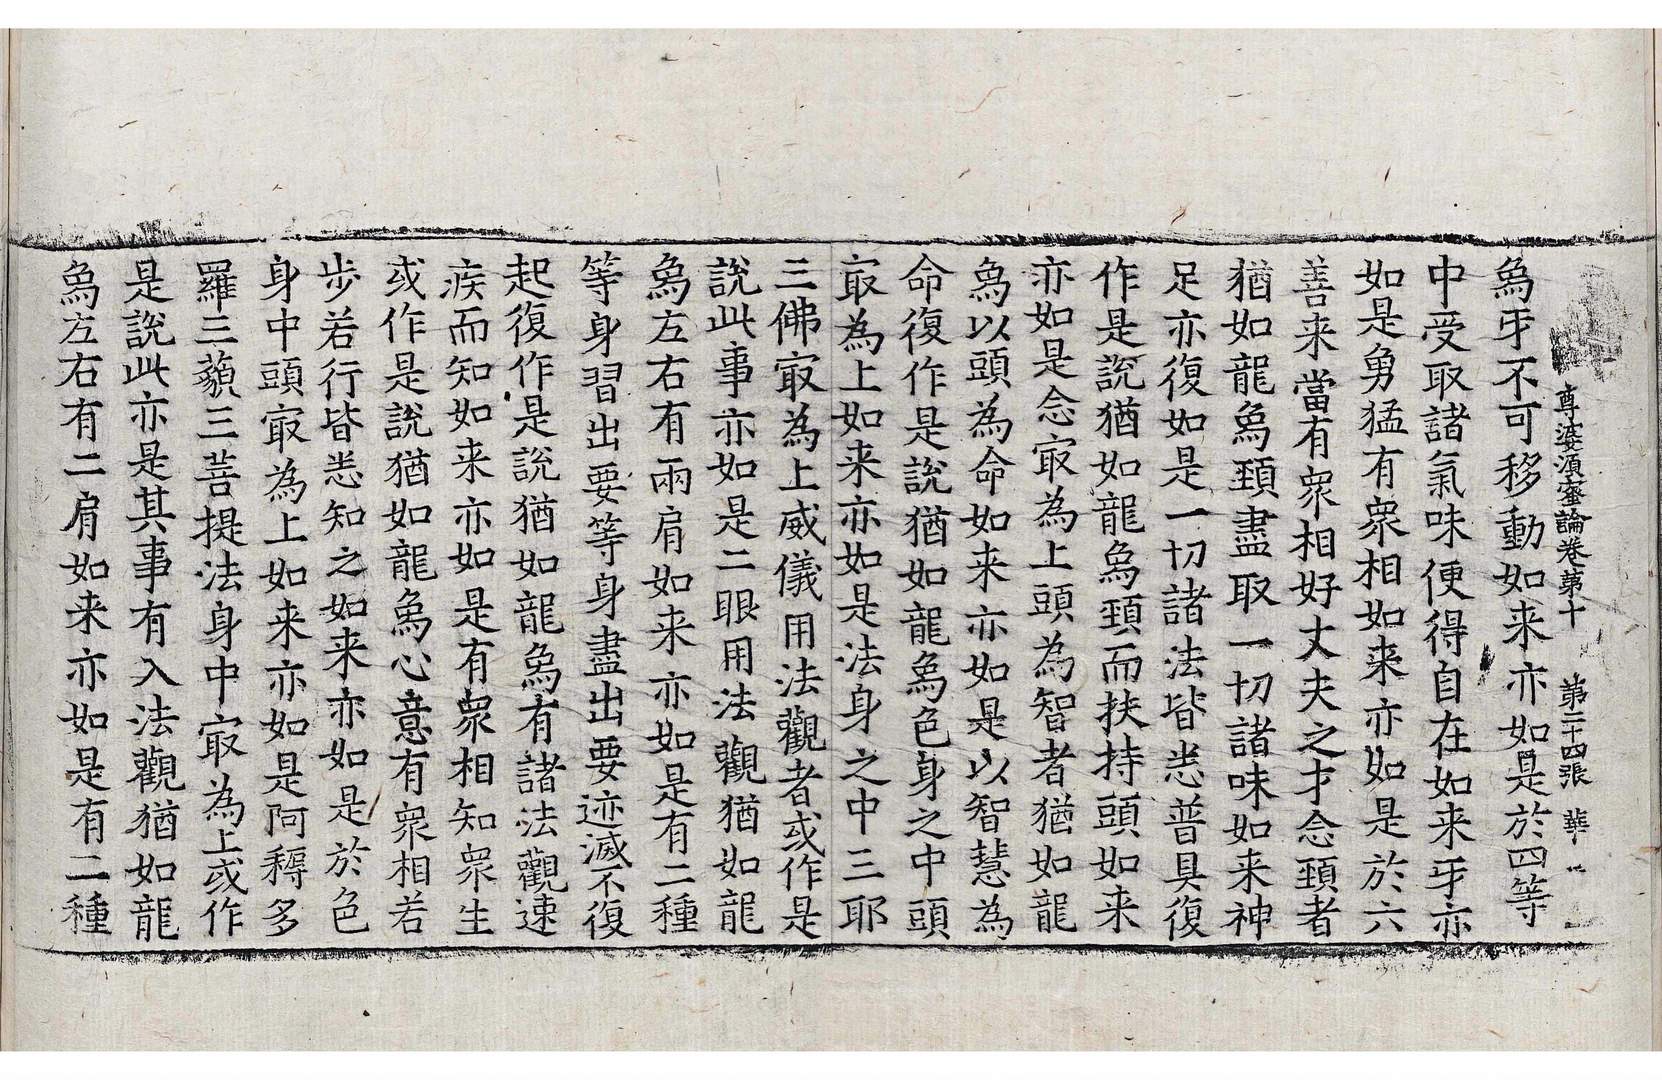 尊婆湏蜜論卷第十 第二十四張 華
象牙不可移動如来亦如是於四等
中受取諸氣味便得自在如来牙亦
如是勇猛有衆相如来亦如是於六
善来當有衆相好丈夫之才念頚者
猶如龍象頚盡取一切諸味如来神
足亦復如是一切諸法皆悉普具復
作是說猶如龍象頚而扶持頭如来
亦如是念㝡為上頭為智者猶如龍
象以頭為命如来亦如是以智慧為
命復作是說猶如龍象色身之中頭
㝡為上如来亦如是法身之中三耶
三佛㝡為上威儀用法觀者或作是
說此事亦如是二眼用法觀猶如龍
象左右有兩肩如来亦如是有二種
等身習出要等身盡出要迹滅不復
起復作是說猶如龍象有諸法觀速
疾而知如来亦如是有衆相知衆生
或作是說猶如龍象心意有衆相若
步若行皆悉知之如来亦如是於色
身中頭㝡為上如来亦如是阿耨多
羅三藐三菩提法身中㝡為上或作
是說此亦是其事有入法觀猶如龍
象左右有二肩如来亦如是有二種